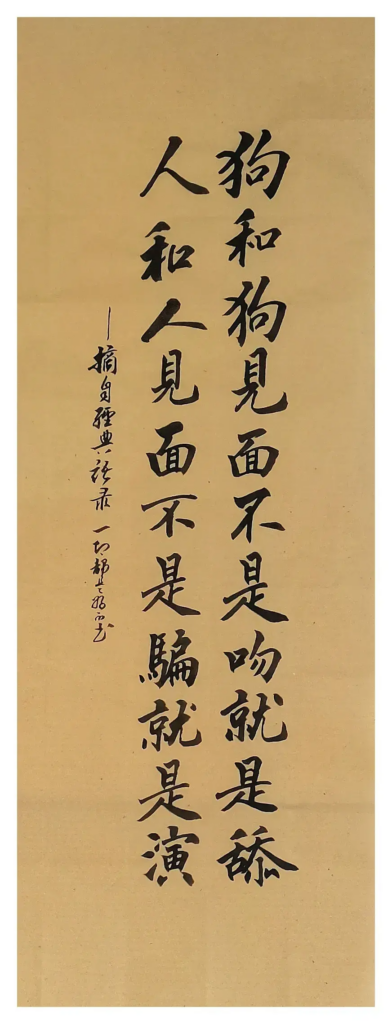 狗和狗見面不是吻就是舔
人和人見面不是騙就是演
—摘自經典语录 一切都是为